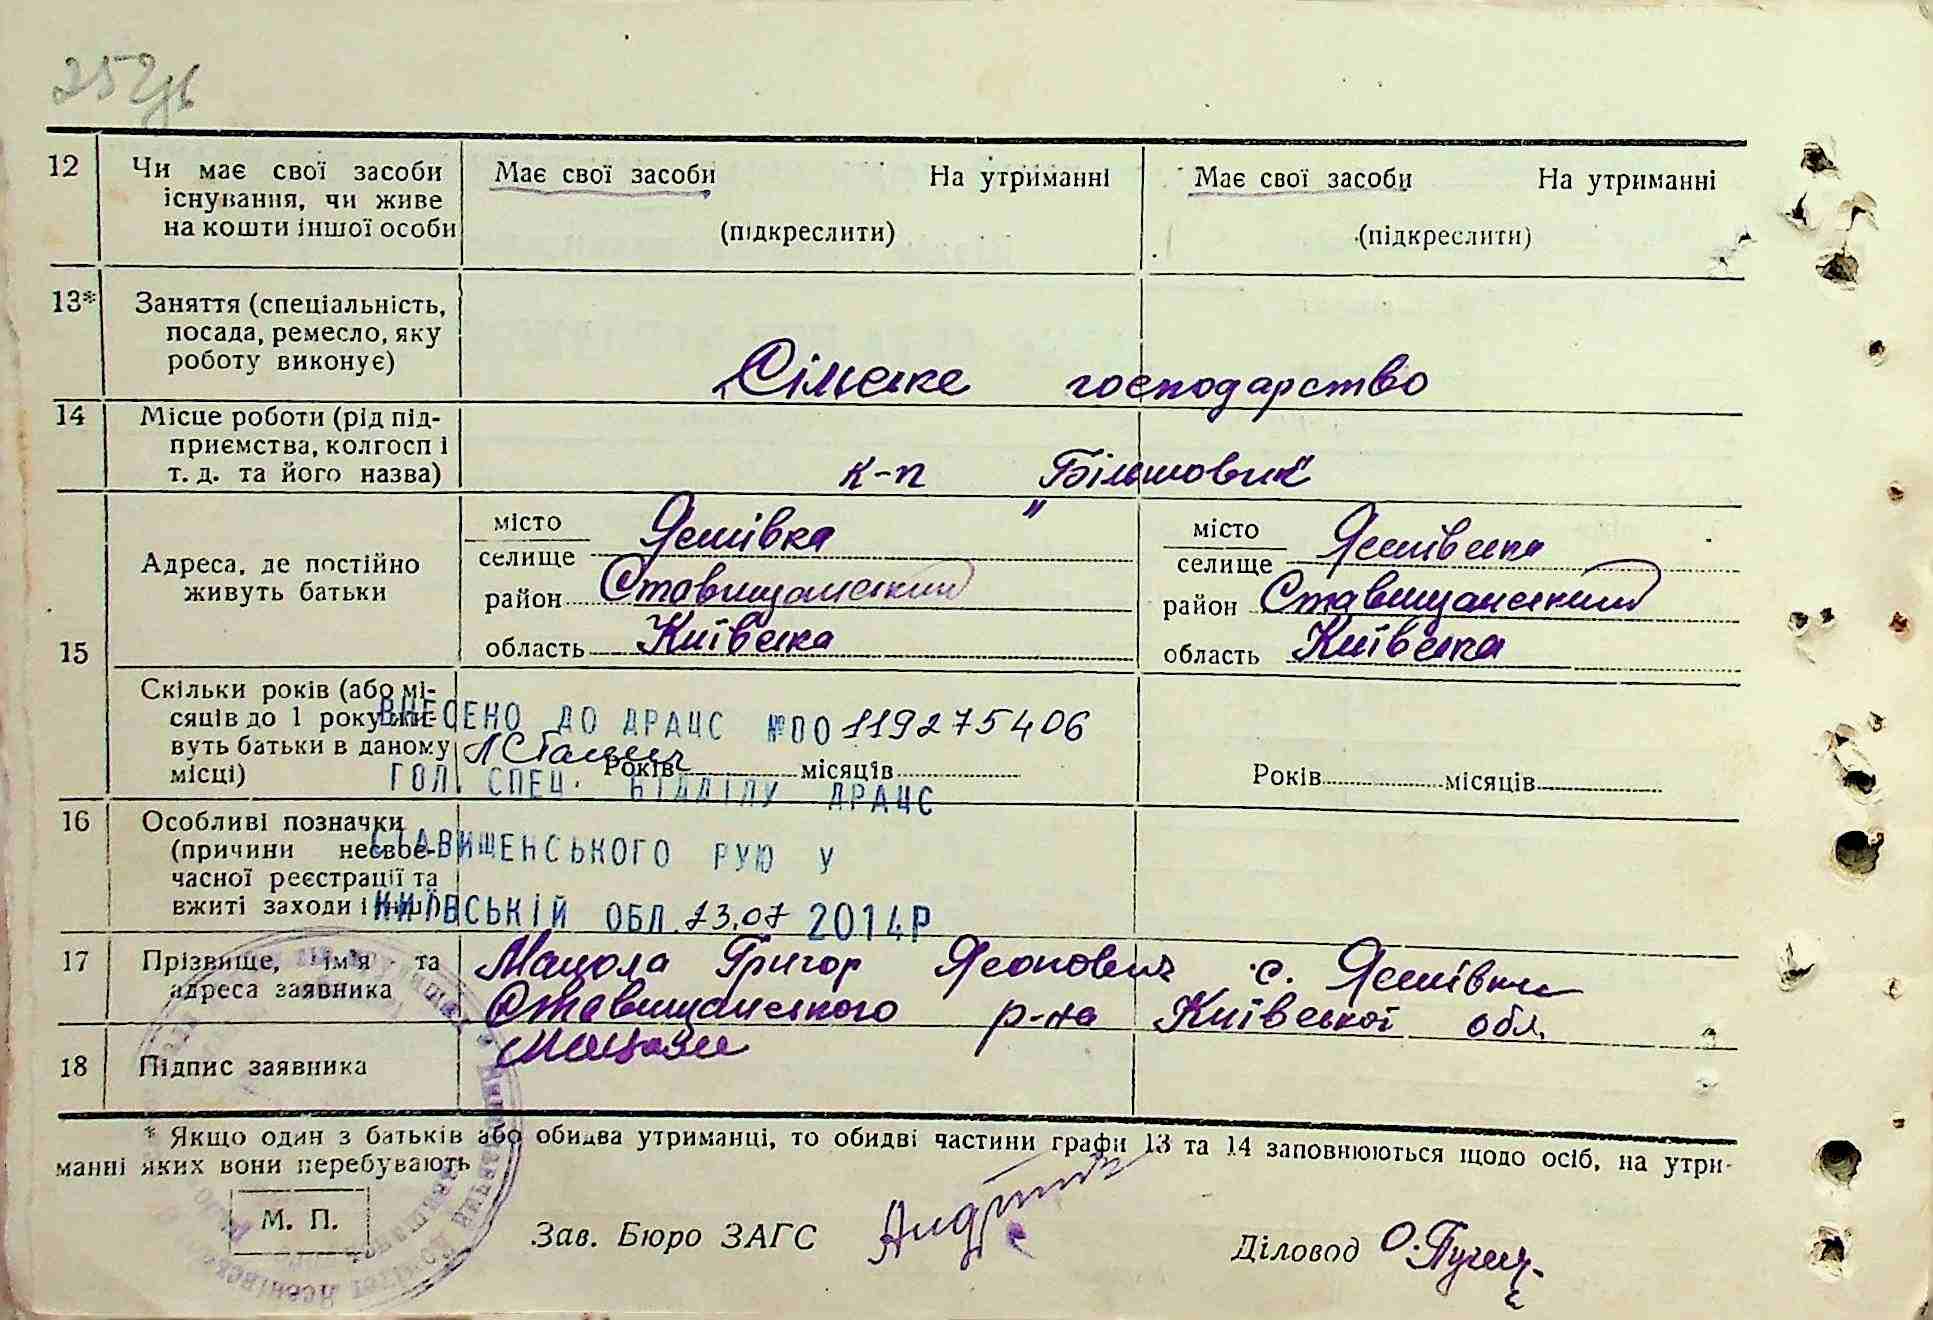 252
12 Чи має свої засоби існування, чи живе на кошти іншої особи
Має свої засоби На утриманні
(підкреслити)
Має свої засоби На утриманні
(підкреслити)
13* Заняття (спеціальність, посада, ремесло, яку роботу виконує)
Сільське господарство
14 Місце роботи (рід підприємства, колгосп і т. д. та його назва)
к-п „Більшовик"
15
Адреса, де постійно
живуть батьки
місто
селище Ясинівка
район Ставищанський
область Київська
місто
селище Ясинівська
район Ставищанський
область Київська
Скільки років (або мі-
сяців до 1 року) жи-
вуть батьки в даному
місці)
Років місяців
Років місяців
ВНЕСЕНО ДО ДРАЦС №00 119275406
ГОЛ. СПЕЦ. ВІДДІЛУ ДРАЦС
СТАВИЩЕНСЬКОГО РУЮ У
КИЇВСЬКІЙ ОБЛ. 23.07 2014Р
16 Особливі позначки
(причини несвоє-
часної реєстрації та
вжиті заходи і інш.)
17 Прізвище, ім'я та
адреса заявника
Мацола Григор с.
Ставищанського р-на Київської обл.
18 Підпис заявника
* Якщо один з батьків або обидва утриманці, то обидві частини графи 13 та 14 заповнюються щодо осіб, на утри-
манні яких вони перебувають
М. П.
Зав. Бюро ЗАГС
Діловод О.